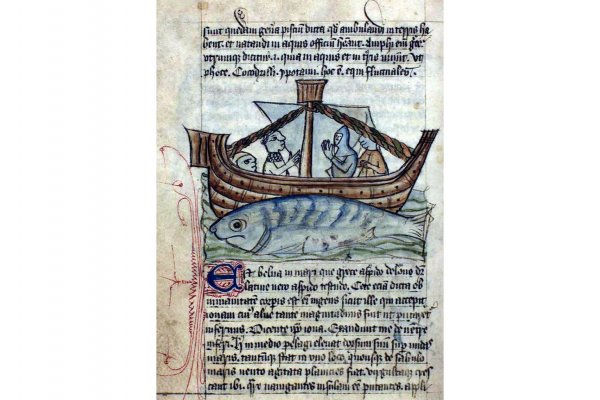 sunt quedam gen̄a pisciū dicta qd̄ ambulandi in terris ha
bent. et natandi in aquis officiū hāant. Amphi em̄ gre
dicitur .i. quia in aquis et in tr̄is uiuūt. Vt
phoce. Cocodrilli. ypotami. hoc ē. equi fluctuales.
Est belua in mari que grece aspido delone dr̄
latine vero aspido testudo. Cete eciā dicta ob
inmanitatem corpis est em̄ ingens sicut ille qui accepit
ionam cuiꝰ aluꝰ tante magnitudinis fuit ut putaret
infernus. Dicente ip̄o iona. Exaudiuit me de ventre
inferi. in medio pelagi eleuat dorsum suū undas
maris. tantūque stat in uno loco. quousque de sabulo
maris vento agitata planicies fiat. virgultaque cres
cant ibi. nauigantes insulam eē putantes. appli